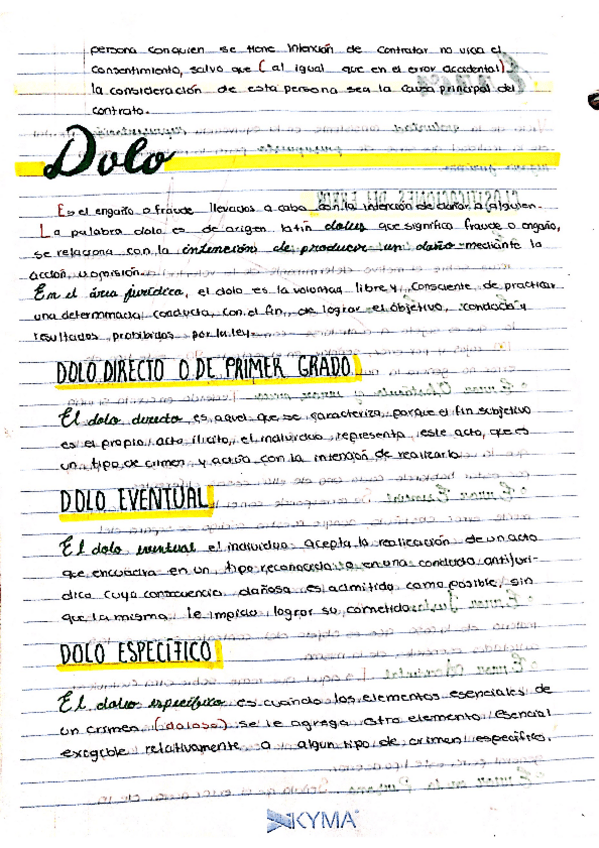 persona conquien se tiene intención de contratar no vicia el
consentimiento, salvo que (al igual que en el error accidental)
la consideración de esta persona sea la causa principal del
contrato.
Dolo
Es el engaño o fraude llevados a cabo con la intención de dañar a alguien.
La palabra dolo es de origen latín dolus que significa fraude o engaño,
se relaciona con la intención de producir un daño mediante la
acción u omisión.
En el área jurídica, el dolo es la voluntad libre y consciente de practicar
una determinada conducta con el fin de lograr el objetivo, conducta y
resultados prohibidos por la ley.
DOLO DIRECTO O DE PRIMER GRADO
El dolo directo es aquel que se caracteriza porque el fin subjetivo
es el propio acto ilícito, el individuo representa este acto, que es
un tipo de crimen y actúa con la intención de realizarlo.
DOLO EVENTUAL
El dolo eventual el individuo acepta la realización de un acto
que encuadra en un tipo reconocida o en una conducta antijurí-
dica cuya consecuencia dañosa es admitida como posible, sin
que la misma le impida lograr su cometido.
DOLO ESPECÍFICO
El dolo específico es cuando los elementos esenciales de
un crimen (doloso) se le agrega otro elemento esencial
exigible relativamente a algun tipo de crimen específico.
KYMA